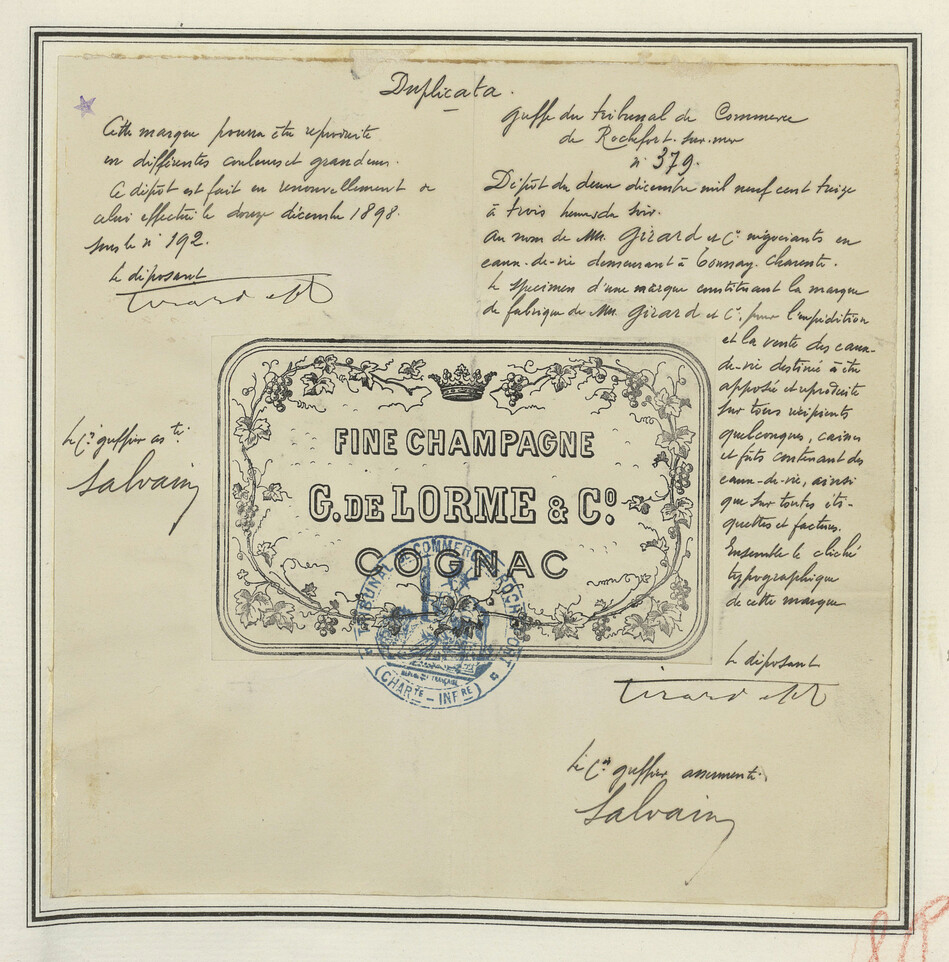 Duplicata.
Cette marque pourra être reproduite
en différentes couleurs et grandeurs.
Ce dépôt est fait en renouvellement de
celui effectué le douze décembre 1898.
sous le n° 192.
Le déposant
Girard et Cº
Le Cis greffier asté.
Salvain
Greffe du tribunal de Commerce
de Rochefort-sur-mer
n° 379.
Dépôt du deux décembre mil neuf cent treize
à trois heures du soir.
Au nom de MM. Girard et Cie négociants en
eaux-de-vie demeurant à Tonnay-Charente.
Le spécimen d'une marque constituant la marque
de fabrique de MM. Girard et Cie, pour l'expédition
et la vente des eaux-
de-vie destinée à être
apposée et reproduite
sur tous récipients
quelconques, caisses
et fûts contenant des
eaux-de-vie, ainsi
que sur toutes éti-
quettes et factures.
Ensemble le cliché
typographique
de cette marque
Le déposant
Girard et Cº
Le Cis greffier assermenté.
Salvain
FINE CHAMPAGNE
G. DE LORME & Cº.
COGNAC
TRIBUNAL DE COMMERCE ROCHEFORT
(CHARTE - INFRE)